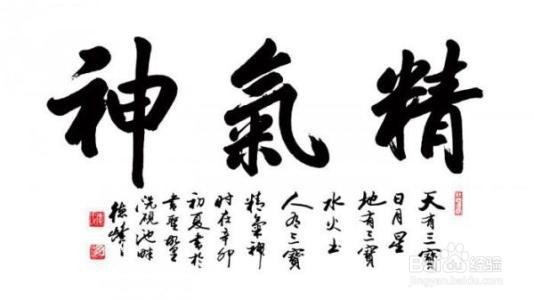 精氣神
天有三寶
日月星
地有三寶
水火土
人有三寶
精氣神
时在辛卯
初夏書於
書聖故里
洗硯池畔
Baidu 经验
jingyan.baidu.com